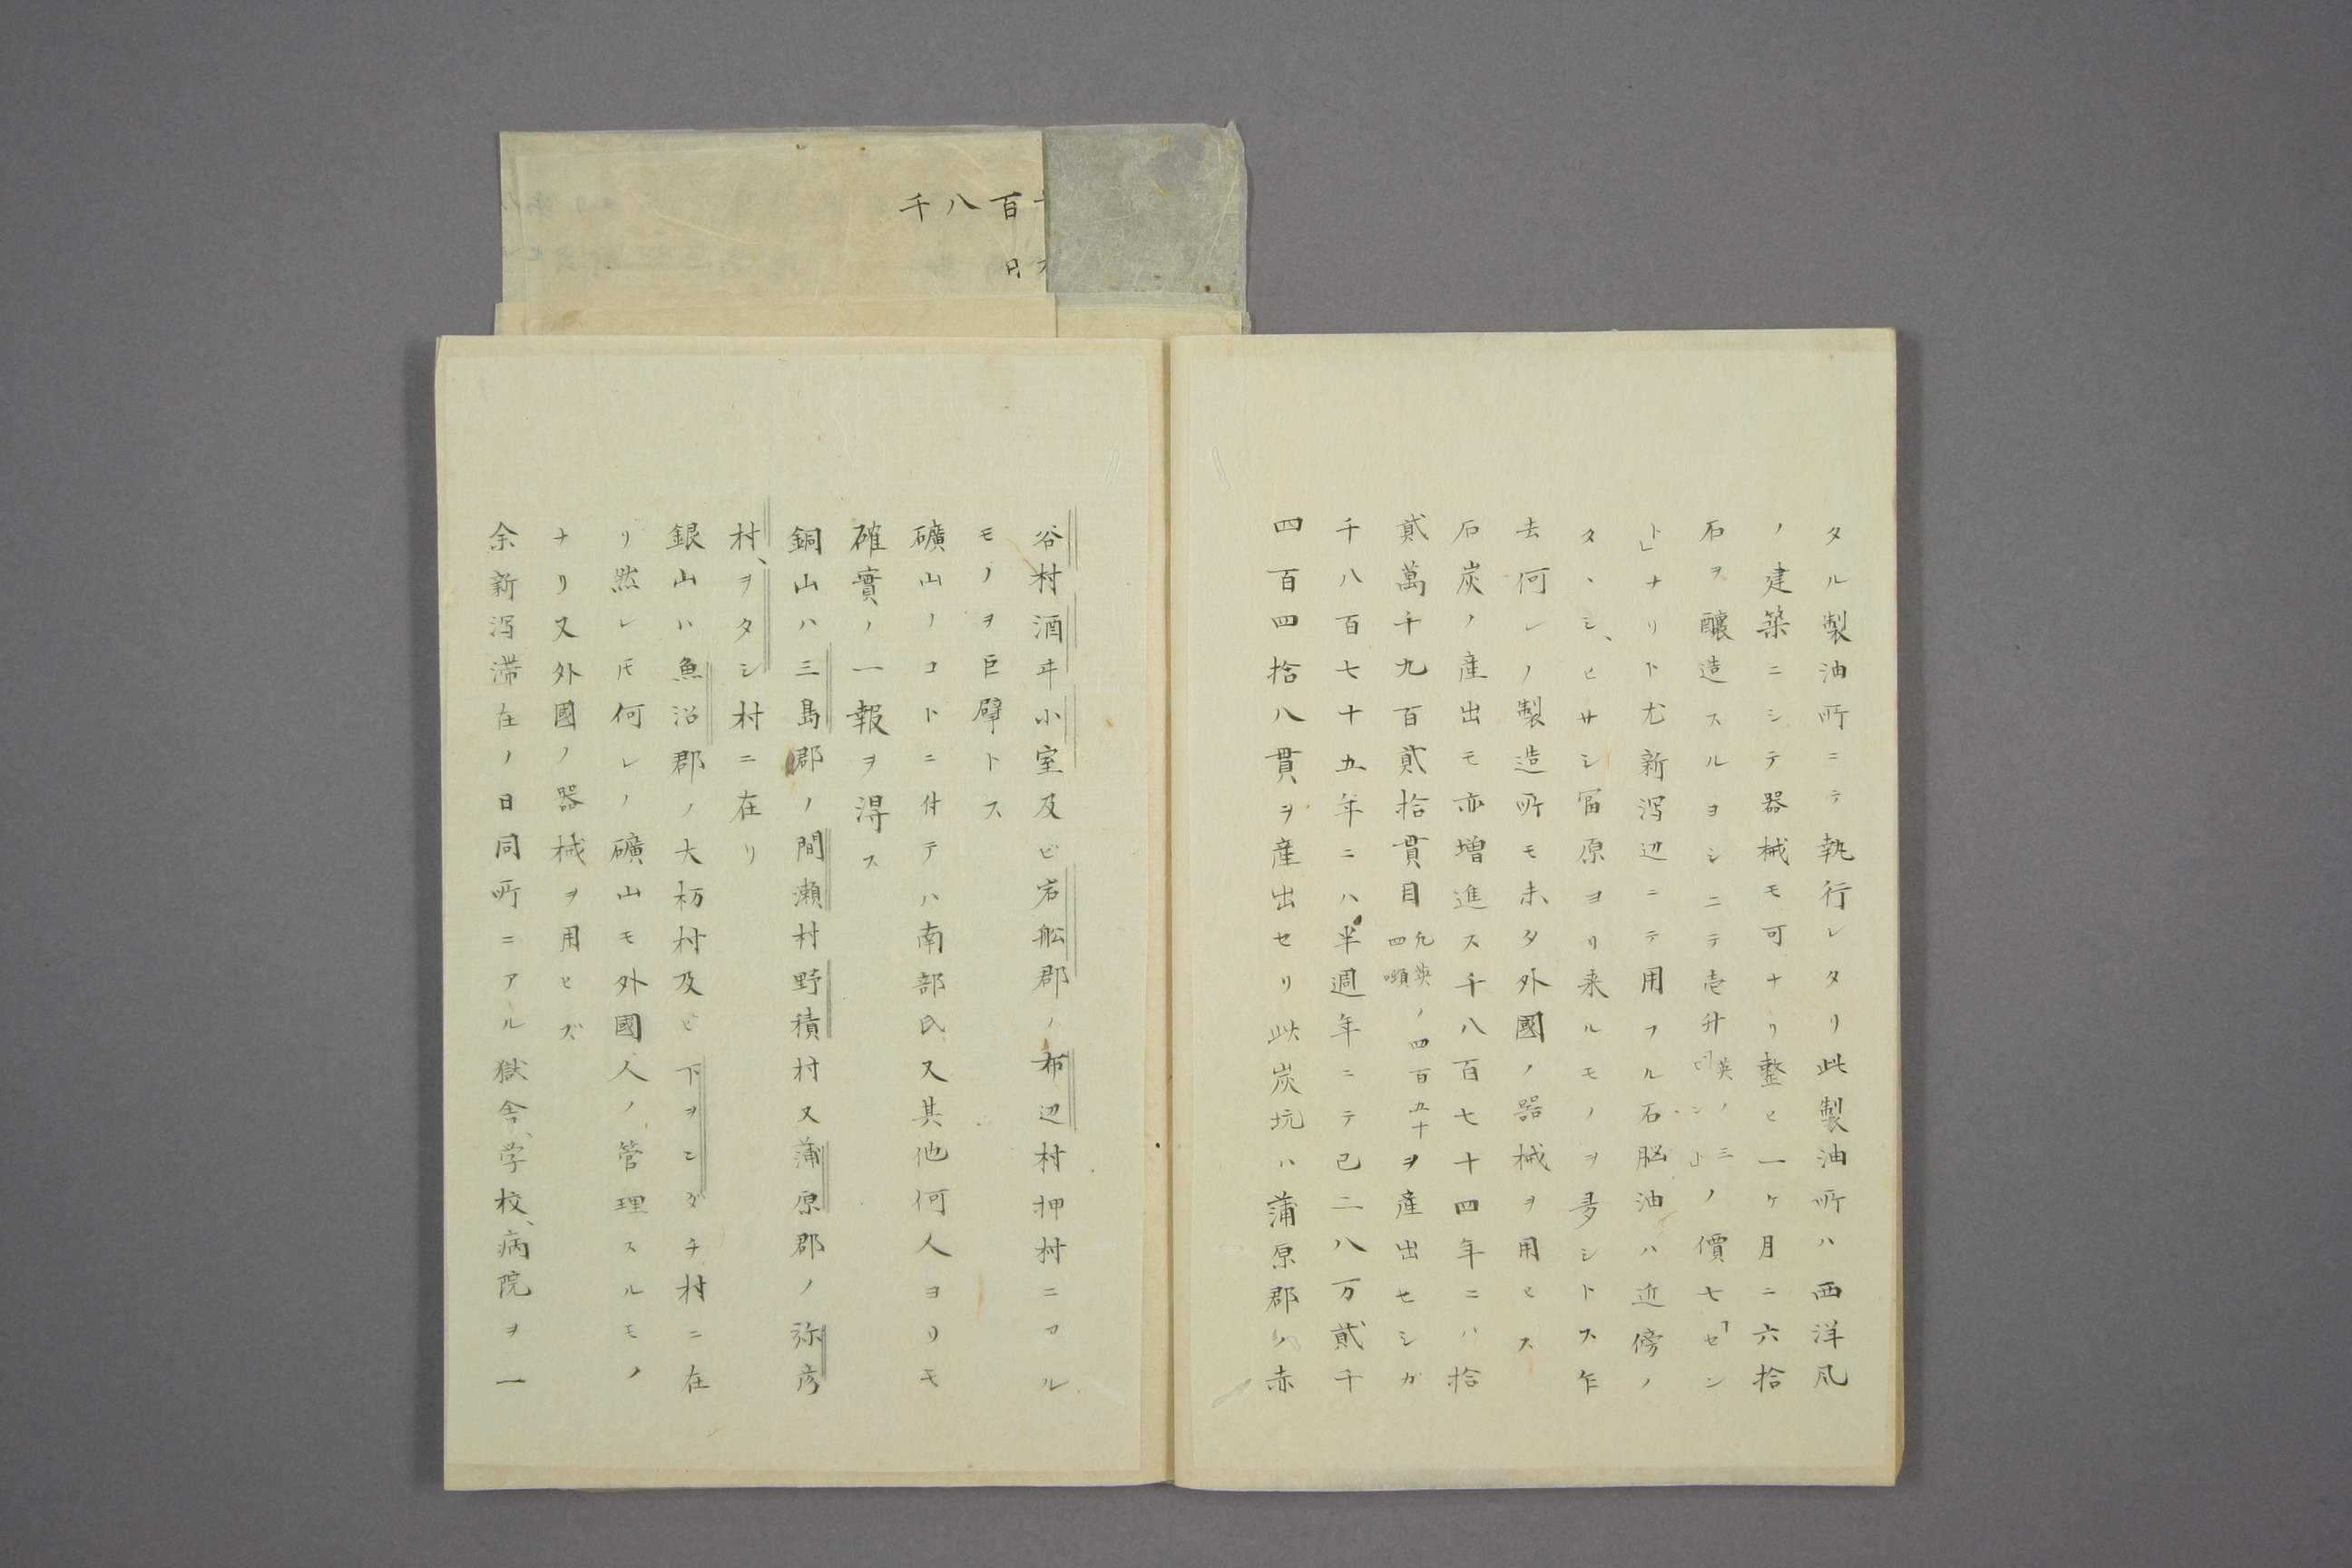 千八百十
日
タル製油所ニテ執行レタリ此製油所ハ西洋凨
ノ建築ニシテ器械モ可ナリ整ヒ一ケ月ニ六拾
石ヲ釀造スルヨシニテ壱升英ノ三ノ價七「セン
ト」ナリト尤新泻辺ニテ用フル石脳油ハ近傍ノ
タヽシ、ヒサシ冨原ヨリ来ルモノヲ多シトス乍
去何レノ製造所モ未タ外國ノ器械ヲ用ヒス
石炭ノ産出モ亦増進ス千八百七十四年ニハ拾
貮萬千九百貮拾貫目凡英ノ四百五十四噸ヲ産出セシガ
千八百七十五年ニハ半週年ニテ已ニ八万貮千
四百四拾八貫ヲ産出セリ此炭坑ハ蒲原郡ノ赤
谷村酒ヰ小室及ビ岩舩郡ノ布辺村押村ニアル
モノヲ巨擘トス
礦山ノコトニ付テハ南部氏又其他何人ヨリモ
確實ノ一報ヲ淂ス
銅山ハ三島郡ノ間瀬村野積村又蒲原郡ノ弥彦
村、ヲタシ村ニ在リ
銀山ハ魚沼郡ノ大枥村及ビ下ヲニダチ村ニ在
リ然レ𪜈何レノ礦山モ外國人ノ管理スルモノ
ナリ又外國ノ器械ヲ用ヒズ
余新泻滞在ノ日同所ニアル獄舎、学校、病院ヲ一